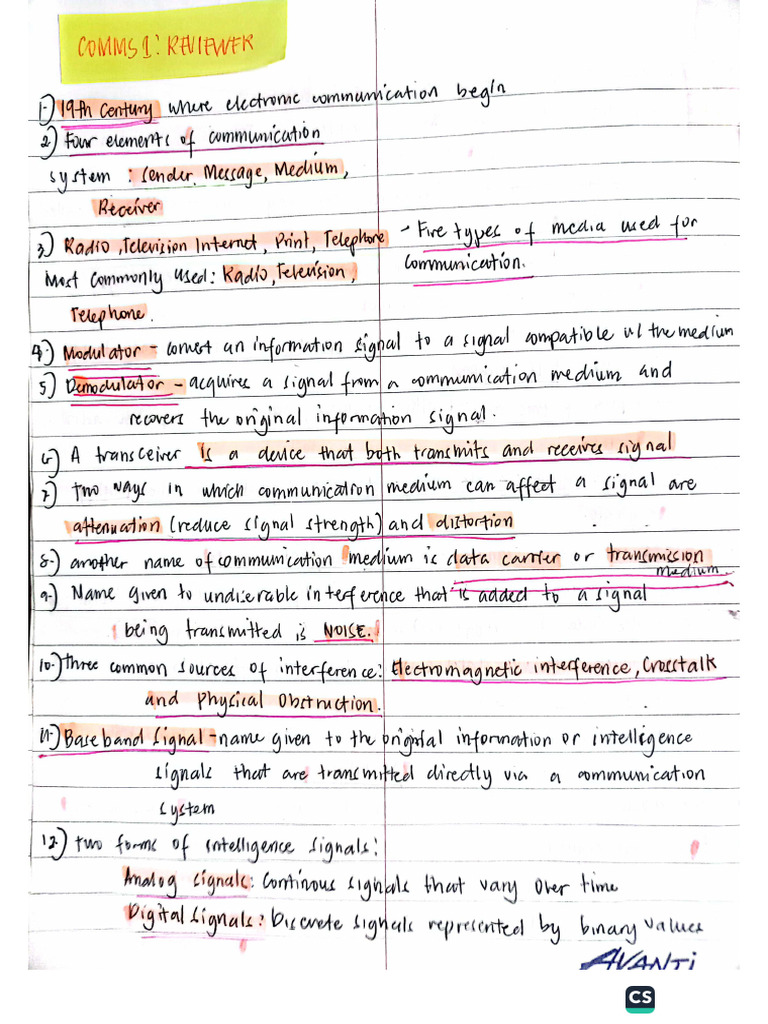 COMMS 1: REVIEWER
1.) 19th Century where electronic communication begin
2.) Four elements of communication
system : Sender, Message, Medium,
Receiver
3.) Radio, Television Internet, Print, Telephone - Five types of media used for
communication.
Most commonly used: Radio, Television,
Telephone.
4.) Modulator - convert an information signal to a signal compatible w/ the medium
5.) Demodulator - acquires a signal from a communication medium and
recovers the original information signal.
6.) A transceiver is a device that both transmits and receives signal
7.) Two ways in which communication medium can affect a signal are
attenuation (reduce signal strength) and distortion
8.) another name of communication medium is data carrier or transmission
medium.
9.) Name given to undiserable interference that is added to a signal
being transmitted is NOISE.
10.) three common sources of interference: Electromagnetic interference, Crosstalk
and Physical Obstruction.
11.) Baseband Signal - name given to the original information or intelligence
signals that are transmitted directly via a communication
system
12.) two forms of intelligence signals:
Analog signals: Continous signals that vary over time
Digital signals: Discrete signals represented by binary values
AVANTI
CS